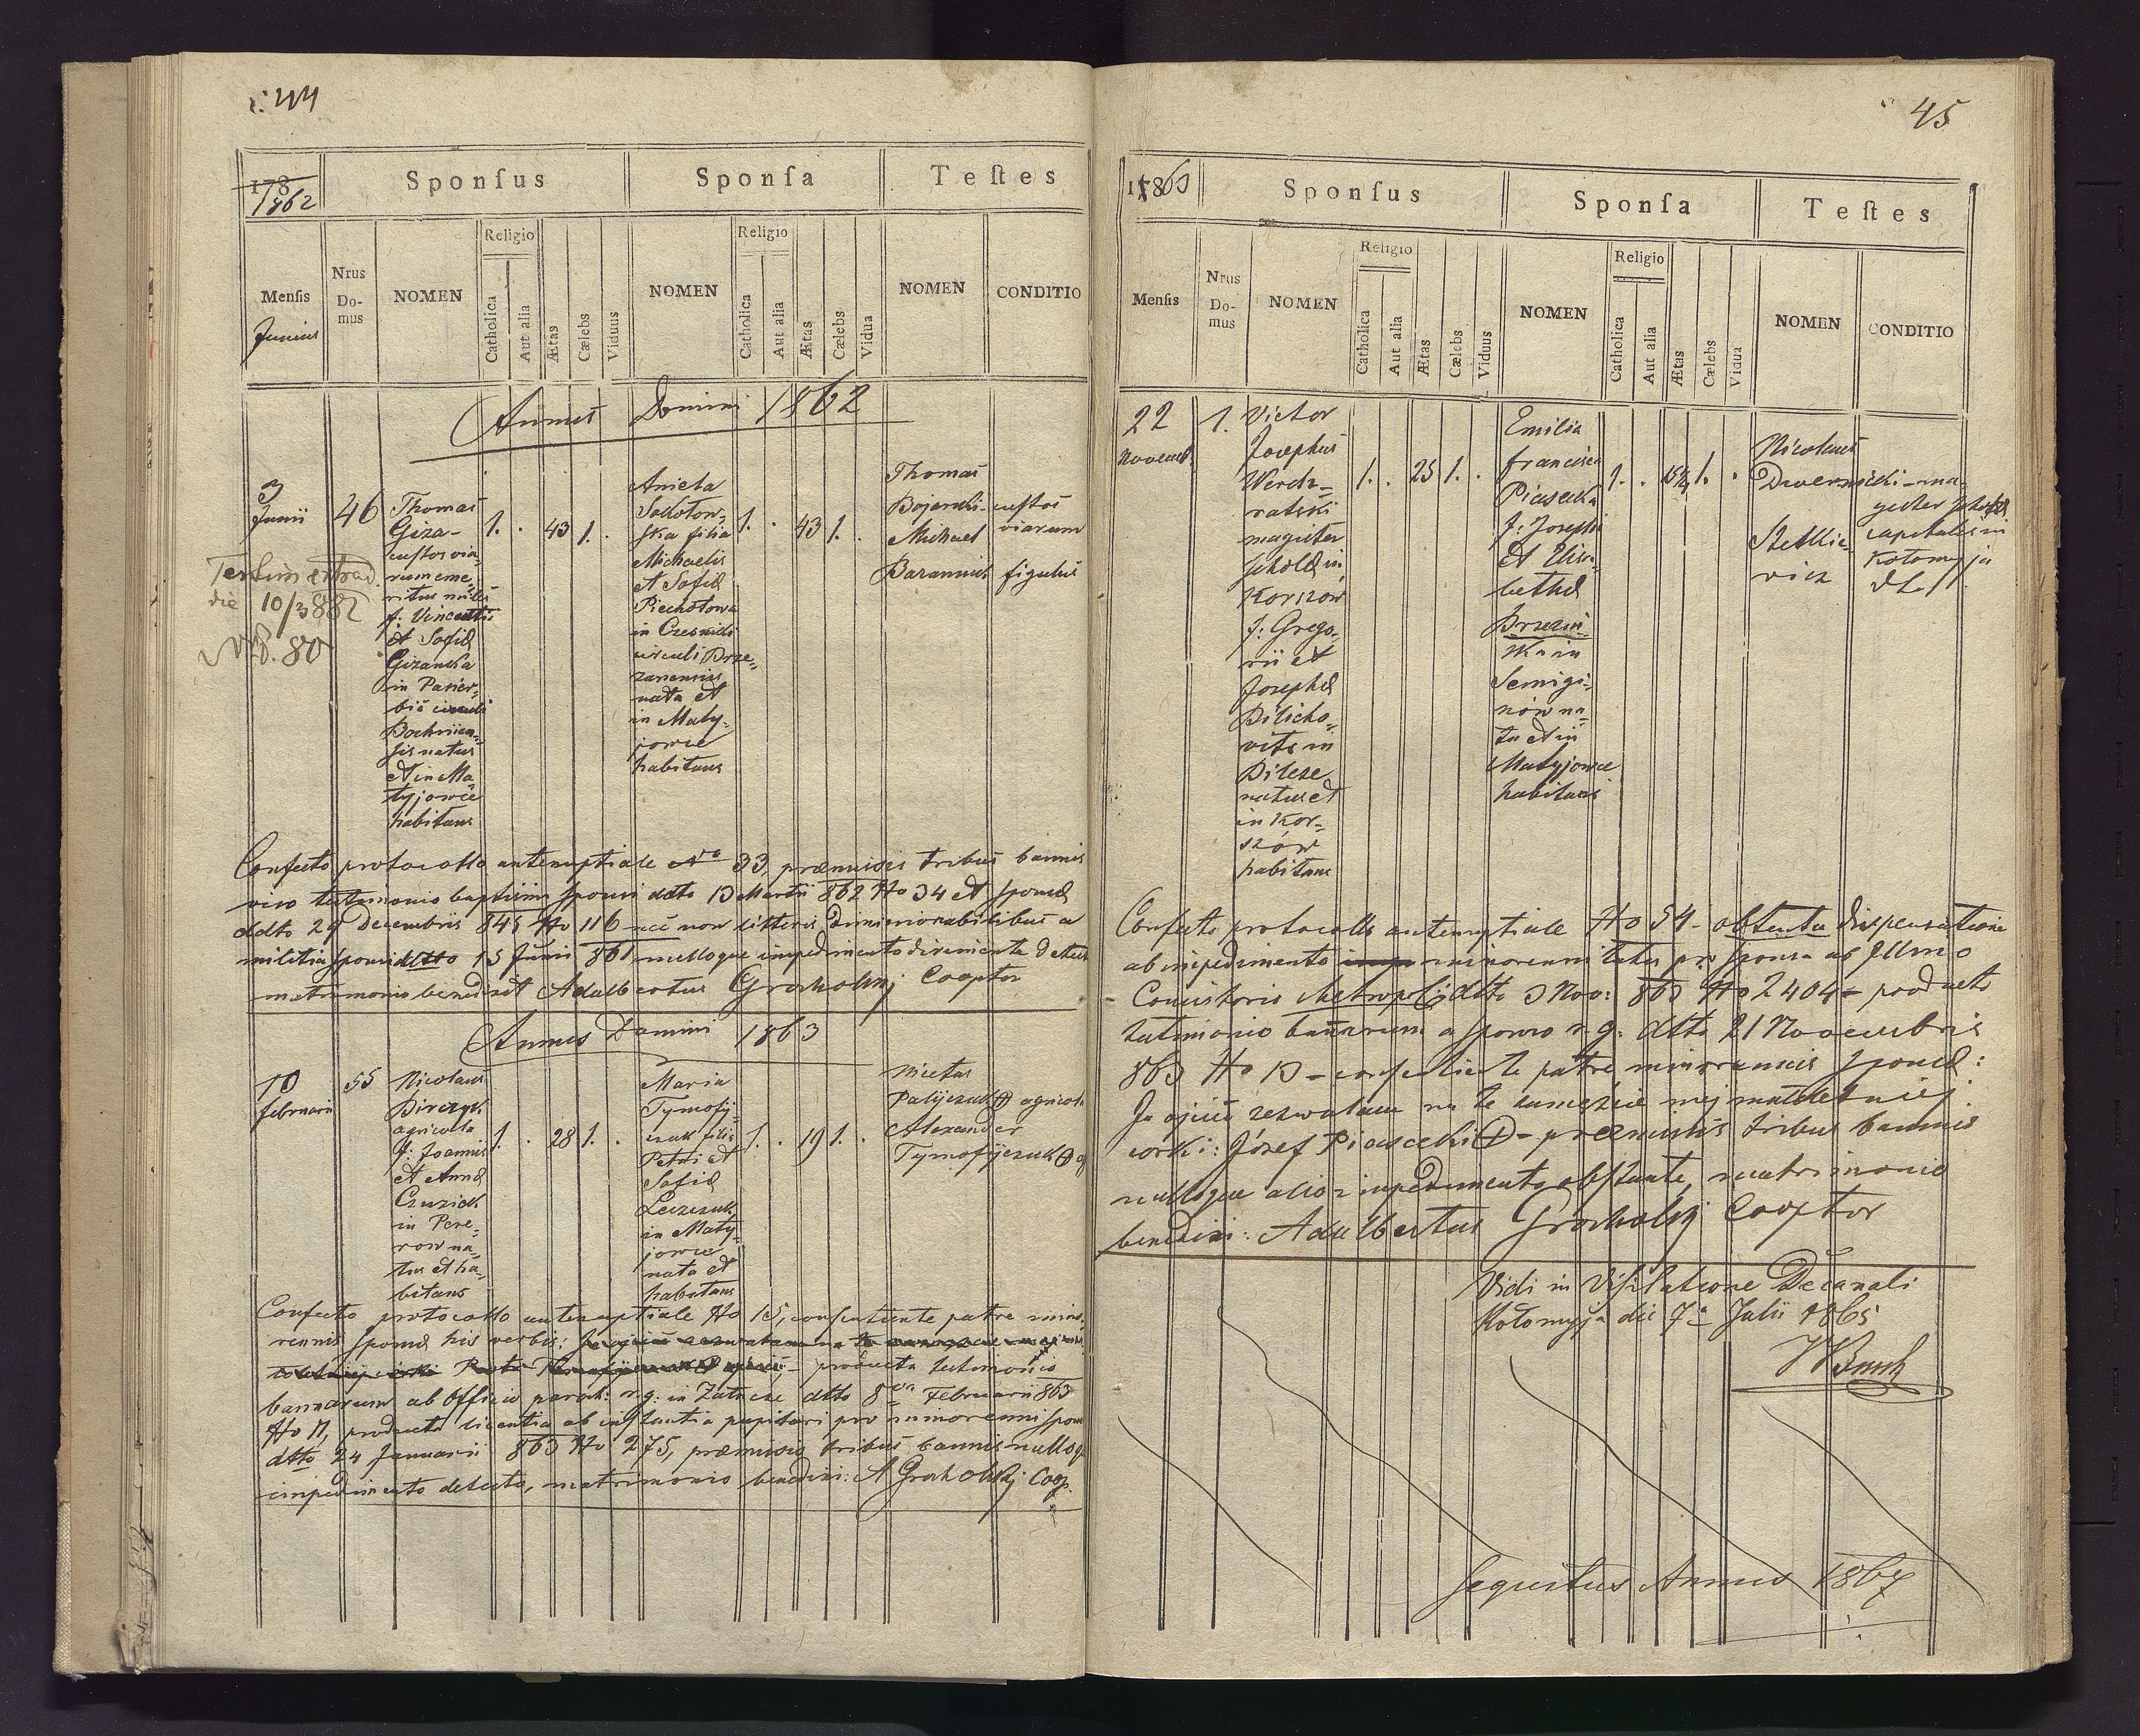 44
178
1862
Sponsus
Sponsa
Testes
Mensis
Junius
Nrus Domus
NOMEN
Religio
Catholica
Aut alia
Ætas
Cælebs
Viduus
NOMEN
Religio
Catholica
Aut alia
Ætas
Cælebs
Vidua
NOMEN
CONDITIO
Annus Domini 1862
3
Junii
46
Thomas
Giza-
custos via-
rum eme-
ritus
f: Vincentii
et Sofiæ
Gizanska
in Pasier-
bic circuli
Bochnien-
sis natus
et in Ma
tyjowce
habitans
1. . 43 1. .
Anicta
filia
Michaelis
et Sofiæ
Piechotowa
in
circuli Brze-
zanensis
nata et
in Maty-
jowce
habitans
1. . 43 1. .
Thomas
Bojarski- custos
Michael viarum
figulus
die 10/3 882
NP. 80
Confecto protocollo antenuptiale No 33, præmissis tribus bannis
viso testimonio baptismi sponsi ddto 13 Martii 862 No 34 et sponsæ
ddto 29 Decembris 845 No 116 nec non litteris dimissionabilibus a
militia sponsi ddtto 15 Junii 861 nulloque impedimento dirimente detecto
matrimonio benedixit Adalbertus Grocholskj Cooptor
Annus Domini 1863
10
februarii
55
Nicolaus
agricola
f: Joannis
et Annæ
in Pere-
row na-
tus et ha-
bitans
1. . 28 1. .
Maria
Tymofij-
czuk filia
Petri et
Sofiæ
in Maty-
jowce
nata et
habitans
1. . 19 1. .
Nicetas
agricola
Alexander
Tymofijczuk
Confecto protocollo antenuptiale No 15, consentiente patre mino-
rennis sponsæ his verbis:
producta testimonio
bannorum ab Officio paroch: r.g: in ddto 8va Februarii 863
No 11, producta licentia ab instantia pupilari pro minorenni sponsa
ddto 24 Januarii 863 No 275, præmissis tribus bannis nulloq
impedimento detecto, matrimonio benedixi: A Grocholskj Coop.
45
1863
Sponsus
Sponsa
Testes
Mensis
Nrus Domus
NOMEN
Religio
Catholica
Aut alia
Ætas
Cælebs
Viduus
NOMEN
Religio
Catholica
Aut alia
Ætas
Cælebs
Vidua
NOMEN
CONDITIO
22
Novemb.
1.
Victor
Josephus
Werch-
ratski
magister
scholæ in
Korszow
f: Grego-
rii et
Josephæ
in
natus et
in Kor-
szów
habitans
1. . 25 1. .
Emilia
Francisca
Piasecka
f: Josephi
et Elisa-
bethæ
Brzezin-
ska in
Semigi-
now na-
ta et in
Matyjowce
habitans
1. . 1. .
Nicolaus
-ma-
gister scholæ
capitalis in
Kołomyja
Confecto protocollo antenuptiale No 54 - obtenta dispensatione
ab impedimento minorennitatis pro sponsa ab Illmo
Consistorio Metropol: ddto 3 Nov: 863 No 2404 - producto
testimonio bannorum a sponso r.g: ddto 21 Novembris
863 No 13 - consentiente patre minorennis sponsæ:
Ja ojciec zezwalam na te zamęście mej małoletniej
corki: Józef Piasecki - præmissis tribus bannis
nulloque alio impedimento obstante, matrimonio
benedixi: Adalbertus Grocholskj Cooptor
Vidi in Visitatione Decanali
Kołomyja die 7a Julii 1865
Sequitur Annus 1867